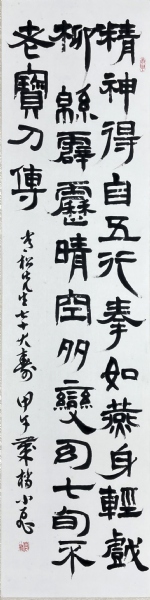 精神得自五行拳如燕身輕戲
柳絲霹靂晴空多變幻七旬不
老寶刀傳
老松先生七十大壽 甲午